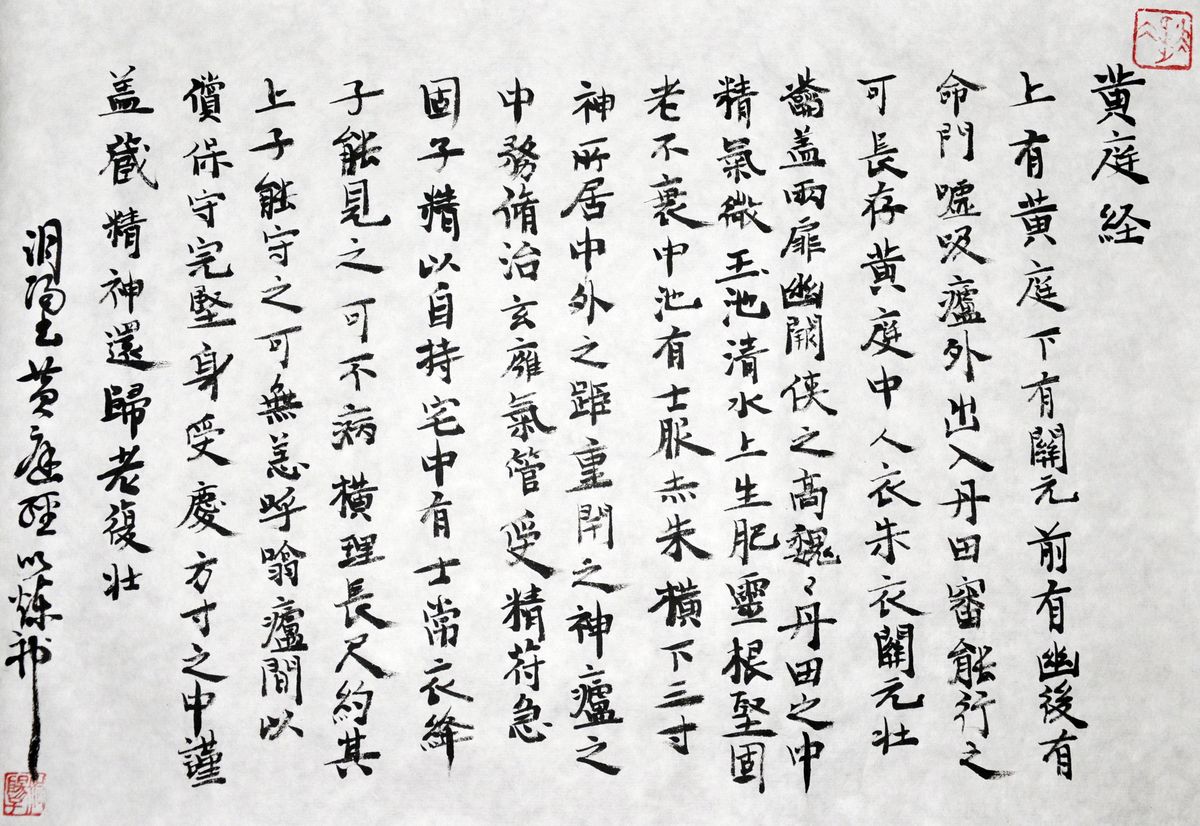 黄庭经
上有黄庭下有關元前有幽後有
命門嘘吸廬外出入丹田審能行之
可長存黄庭中人衣朱衣關元壯
籥盖兩扉幽闕俠之高魏〻丹田之中
精氣微玉池清水上生肥靈根堅固
老不衰中池有士服赤朱横下三寸
神所居中外之距重閇之神廬之
中務脩治玄廱氣管受精苻急
固子精以自持宅中有士常衣絳
子能見之可不病横理長尺約其
上子能守之可無恙呼噏廬間以
償保守完堅身受慶方寸之中謹
盖藏精神還歸老復壯
黄庭經以